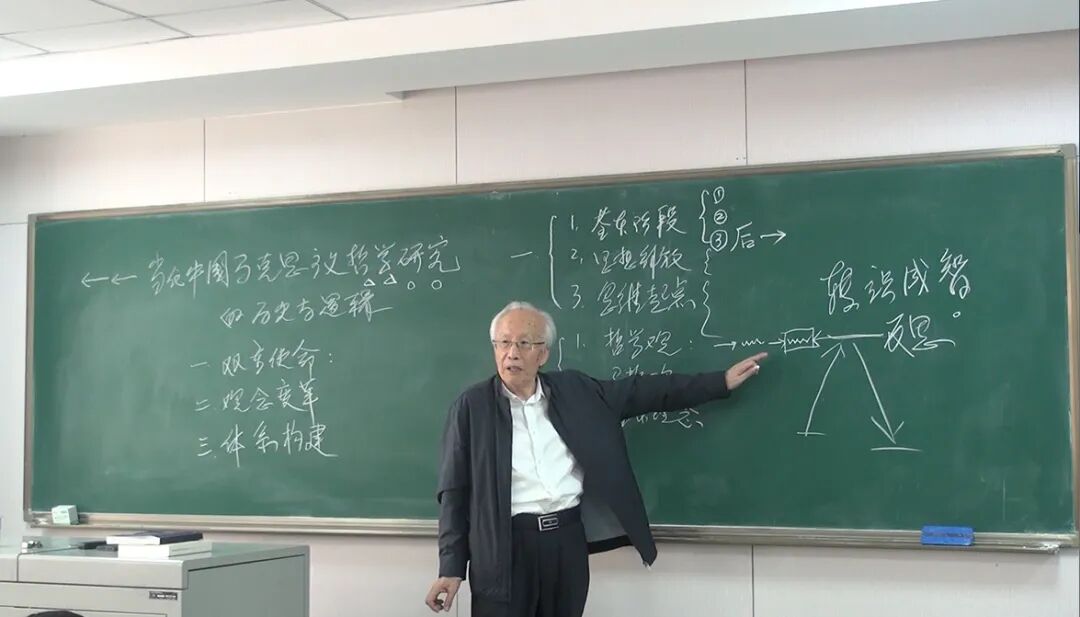 ←← 当代中国马克思主义哲学研究
的历史与逻辑
一 双重使命：
二.观念变革
三.体系构建
一
1. 基本阶段
2. 思想解放
3. 思维起点
① 
② 
③ 后→
1. 哲学观：
理念
转识成智
反思